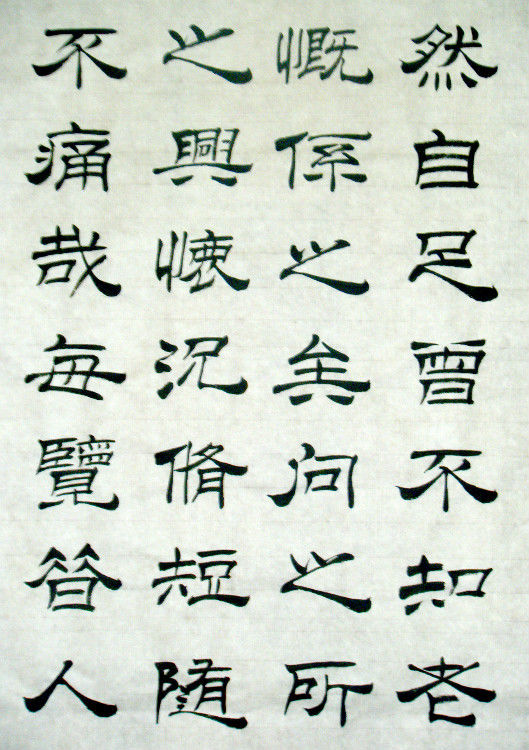 然自足曾不知老
慨係之矣向之所
之興懷況脩短随
不痛哉每覽昔人